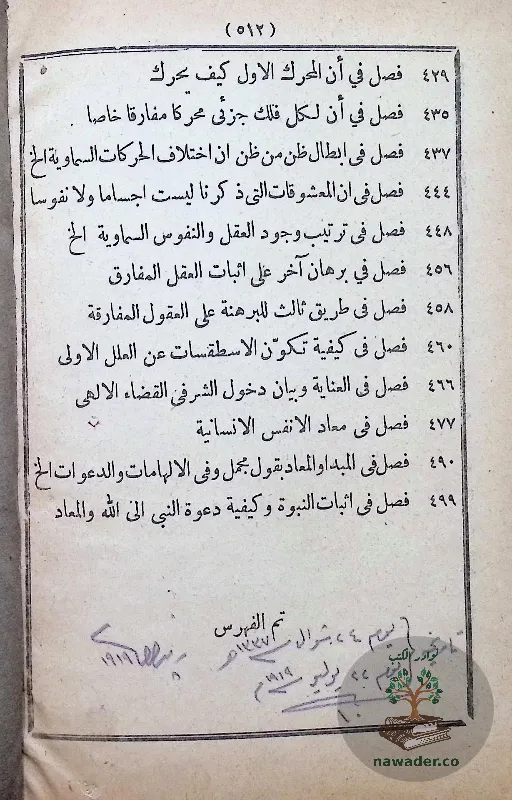 (٥١٢)
٤٢٩ فصل في أن المحرك الاول كيف يحرك
٤٣٥ فصل في أن لكل فلك جزئي محركا مفارقا خاصا
٤٣٧ فصل في ابطال ظن من ظن ان اختلاف الحركات السماوية الخ
٤٤٤ فصل في ان المعشوقات التي ذكرنا ليست اجساما ولا نفوسا
٤٤٨ فصل في ترتيب وجود العقل والنفوس السماوية الخ
٤٥٦ فصل في برهان آخر على اثبات العقل المفارق
٤٥٨ فصل في طريق ثالث للبرهنة على العقول المفارقة
٤٦٠ فصل في كيفية تكوّن الاسطقسات عن العلل الاولى
٤٦٦ فصل في العناية وبيان دخول الشر في القضاء الالهي
٤٧٧ فصل في معاد الانفس الانسانية
٤٩٠ فصل في المبدا والمعاد بقول مجمل وفي الالهامات والدعوات الخ
٤٩٩ فصل في اثبات النبوة وكيفية دعوة النبي الى الله والمعاد
تم الفهرس
تاريخ
يوم ٢٤ شوال سنة ١٣٣٧ هـ
يوم ٢٢ يوليو سنة ١٩١٩ م
١٩١٩
نوادر الكتب
nawader.co